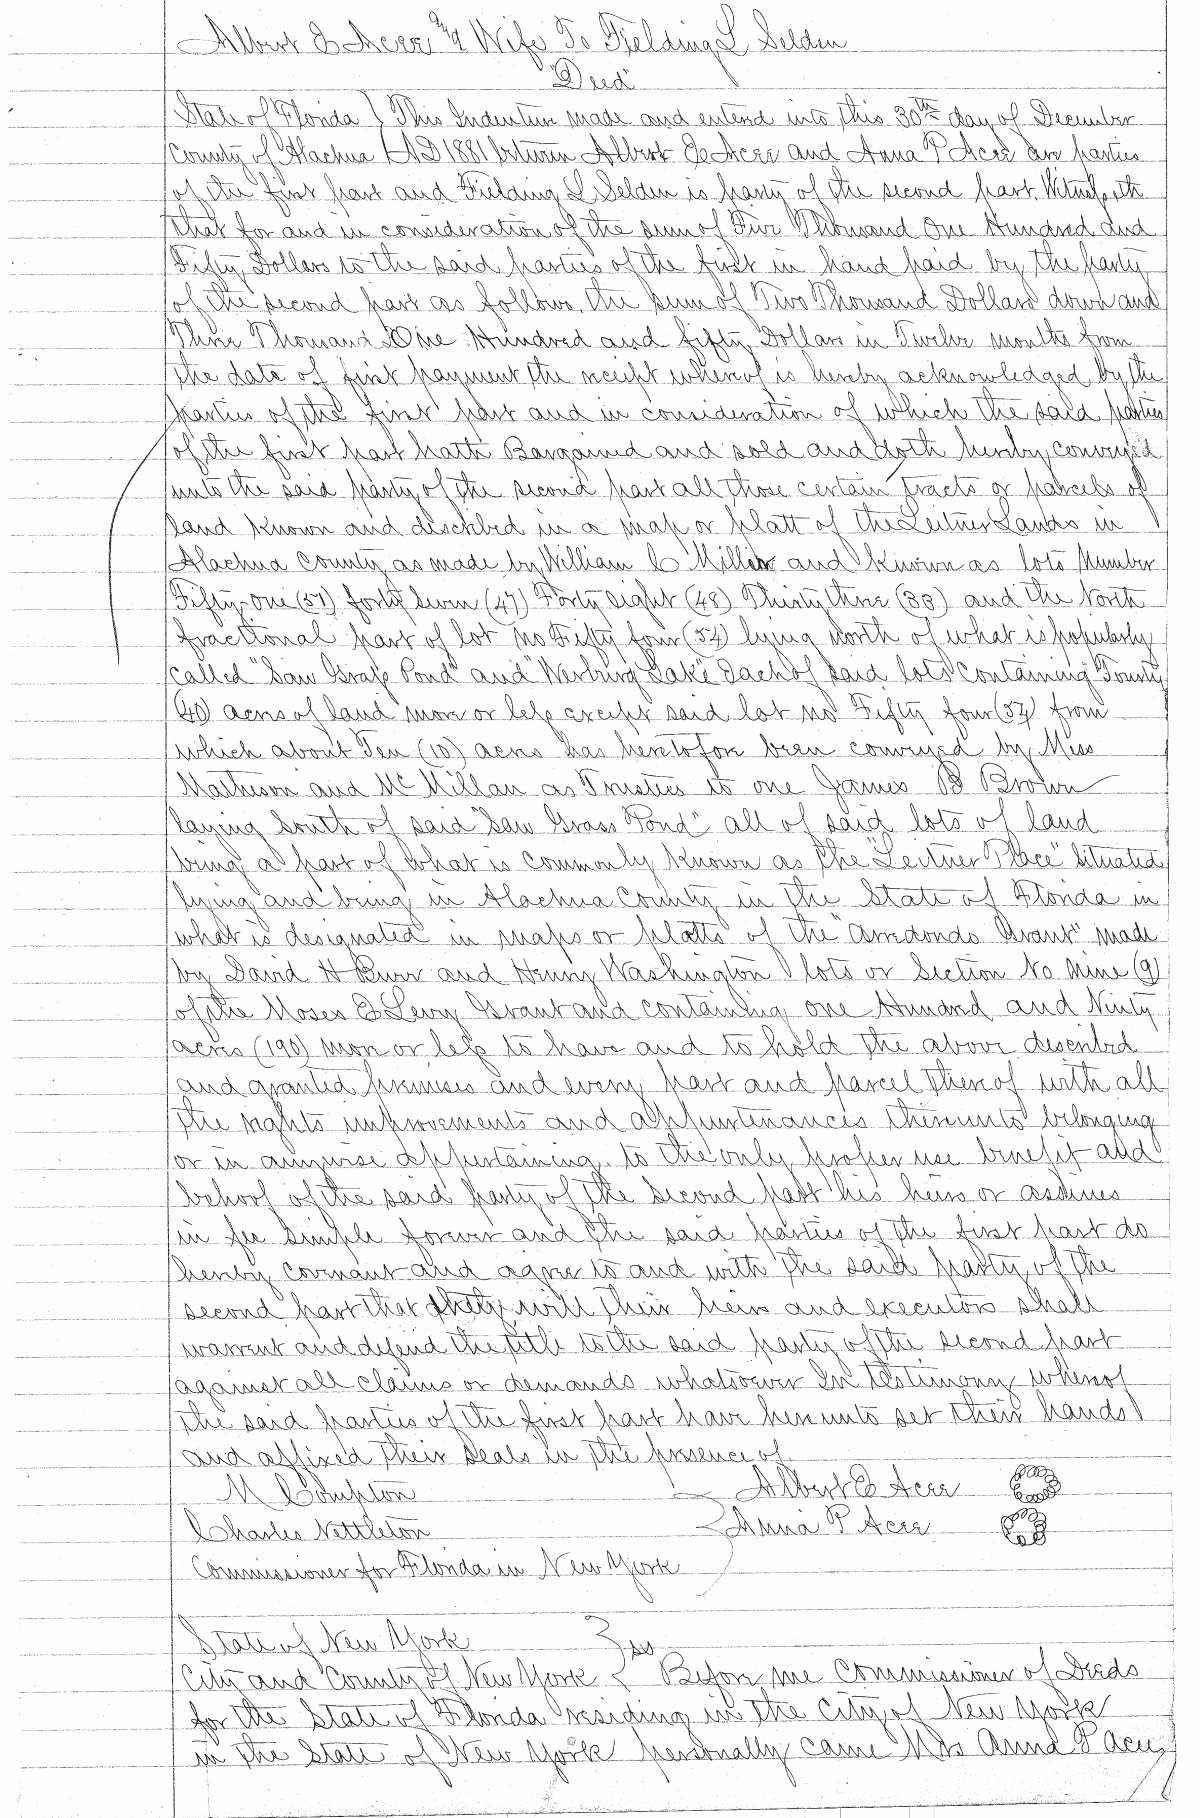 Albert E Acee and Wife To Fielding L Selden
"Deed"
State of Florida } This Indenture made and entend into this 30th day of December
County of Alachua } AD 1881 between Albert E Acee and Anna P Acee are parties
of the first part and Fielding L Selden is party of the second part. Witnesseth
that for and in consideration of the sum of Five Thousand One Hundred and
Fifty Dollars to the said parties of the first in hand paid by the party
of the second part as follows, the sum of Two Thousand Dollars down and
Three Thousand One Hundred and fifty Dollars in Twelve months from
the date of first payment, the receipt whereof is hereby acknowledged by the
parties of the first part and in consideration of which the said parties
of the first part hath Bargained and sold and doth hereby conveyed
unto the said party of the second part all those certain tracts or parcels of
land known and described in a map or platt of the Leitner Lands in
Alachua County as made by William C Miller and known as lots Number
Fifty-one (51) forty seven (47) Forty eight (48) Thirty three (33) and the North
fractional part of lot no Fifty four (54) lying north of what is popularly
called "Saw Grass Pond" and Lake" Each of said lots containing Fourty
(40) acres of land more or less except said lot no Fifty four (54) from
which about Ten (10) acres has heretofore been conveyed by Mess
Matheson and McMillan as Trustees to one James B Brown
laying South of said "Saw Grass Pond" all of said lots of land
being a part of what is commonly known as the "Leitner Place" Situated
lying and being in Alachua County in the State of Florida in
what is designated in maps or platts of the "Arredondo Grant" made
by David H Burr and Henry Washington lots or Section No Nine (9)
of the Moses E Levy Grant and containing one Hundred and Ninty
acres (190) more or less to have and to hold the above described
and granted premises and every part and parcel thereof with all
the rights improvements and appurtenances thereunto belonging
or in anywise appertaining, to the only proper use benefit and
behoof of the said party of the second part his heirs or assines
in fee simple forever and the said parties of the first part do
hereby covenant and agree to and with the said party of the
second part that they will their heirs and executors shall
warrent and defend the title to the said party of the second part
against all claims or demands whatsoever In Testimony whereof
the said parties of the first part have hereunto set their hands
and affixed their seals in the presence of
M Compton Albert E Acee
Charles Nettleton Anna P Acee
Commissioner for Florida in New York
State of New York } ss
City and County of New York } Before me Commissioner of Deeds
for the State of Florida residing in the City of New York
in the State of New York personally came Mrs Anna P Acee